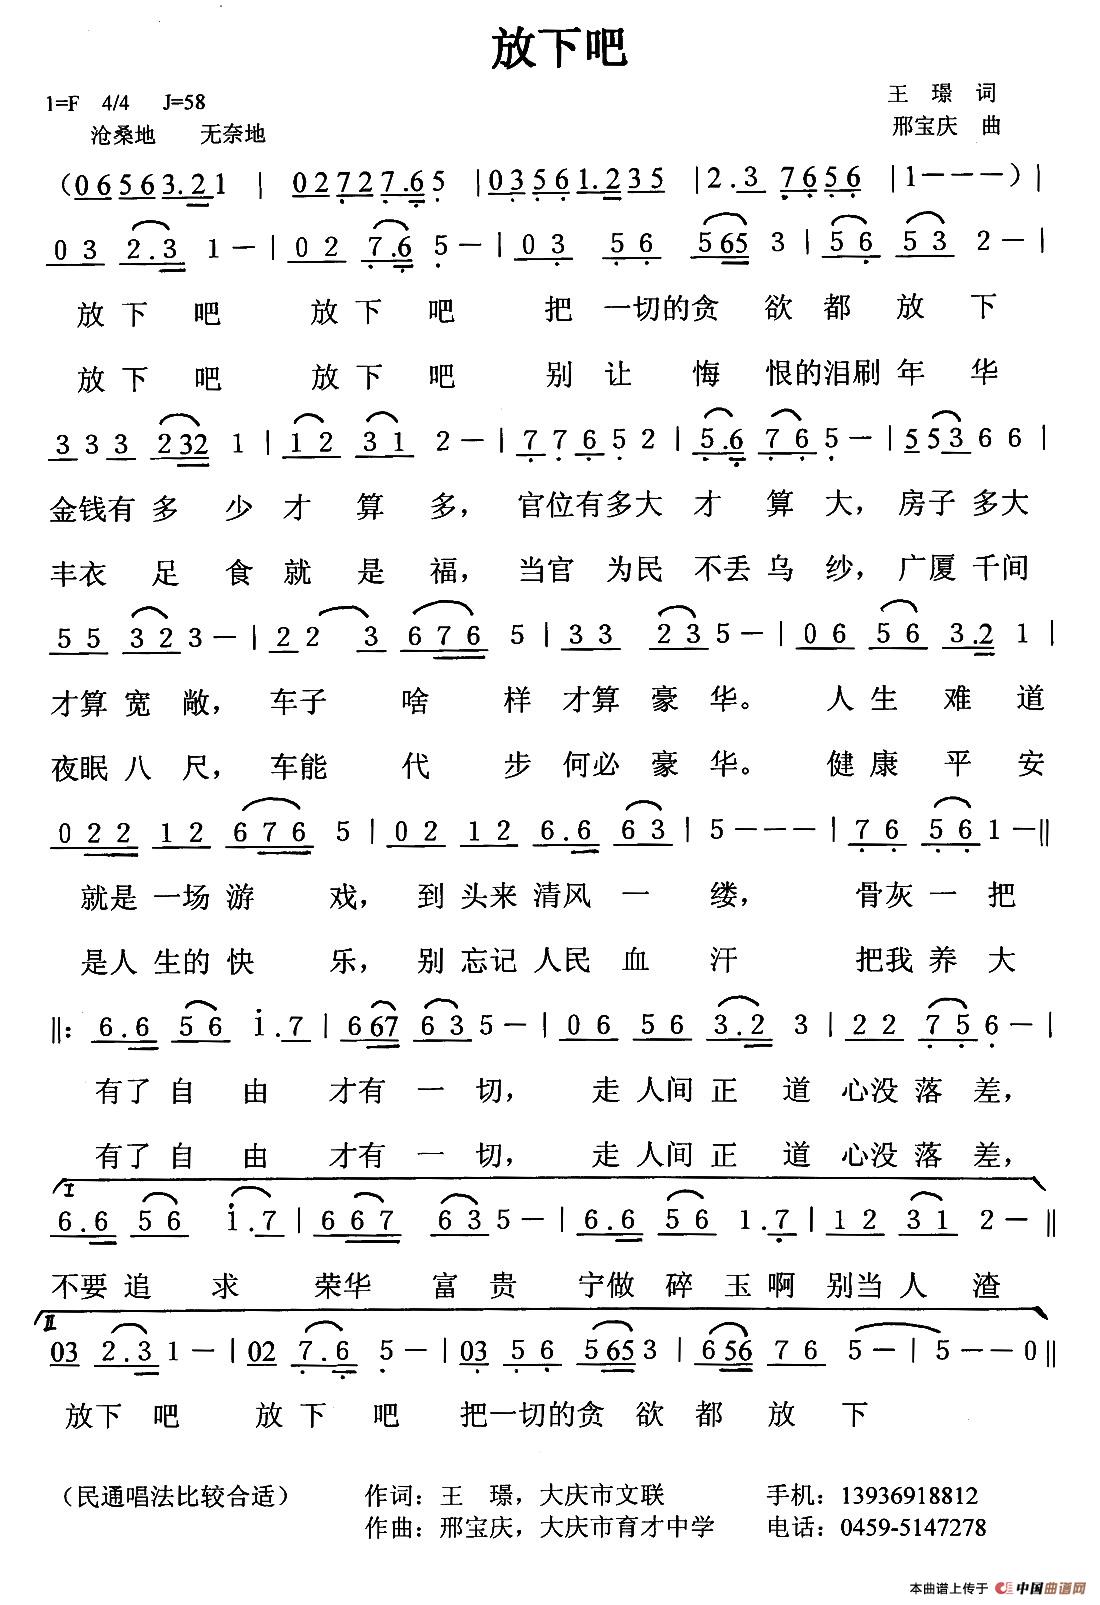 放下吧
1=F 4/4 J=58
王 璟 词
沧桑地 无奈地
邢宝庆 曲
（0 6 5 6 3. 2 1 | 0 2 7 2 7. 6 5 | 0 3 5 6 1. 2 3 5 | 2. 3 7 6 5 6 | 1 - - - ）|
0 3 2. 3 1 - | 0 2 7. 6 5 - | 0 3 5 6 5 6 5 3 | 5 6 5 3 2 - |
放下吧 放下吧 把一切的贪欲都放下
放下吧 放下吧 别让悔恨的泪刷年华
3 3 3 2 3 2 1 | 1 2 3 1 2 - | 7 7 6 5 2 | 5. 6 7 6 5 - | 5 5 3 6 6 |
金钱有多少才算多，官位有多大才算大，房子多大
丰衣足食就是福，当官为民不丢乌纱，广厦千间
5 5 3 2 3 - | 2 2 3 6 7 6 5 | 3 3 2 3 5 - | 0 6 5 6 3. 2 1 |
才算宽敞，车子啥样才算豪华。人生难道
夜眠八尺，车能代步何必豪华。健康平安
0 2 2 1 2 6 7 6 5 | 0 2 1 2 6. 6 6 3 | 5 - - - | 7 6 5 6 1 - ‖
就是一场游戏，到头来清风一缕，骨灰一把
是人生的快乐，别忘记人民血汗 把我养大
‖: 6. 6 5 6 i. 7 | 6 6 7 6 3 5 - | 0 6 5 6 3. 2 3 | 2 2 7 5 6 - |
有了自由才有一切，走人间正道心没落差，
有了自由才有一切，走人间正道心没落差，
I
6. 6 5 6 i. 7 | 6 6 7 6 3 5 - | 6. 6 5 6 1. 7 | 1 2 3 1 2 - ‖
不要追求荣华富贵 宁做碎玉啊别当人渣
II
0 3 2. 3 1 - | 0 2 7. 6 5 - | 0 3 5 6 5 6 5 3 | 6 5 6 7 6 5 - | 5 - - 0 ‖
放下吧 放下吧 把一切的贪欲都放下
（民通唱法比较合适） 作词：王 璟，大庆市文联 手机：13936918812
作曲：邢宝庆，大庆市育才中学 电话：0459-5147278
本曲谱上传于 中国曲谱网